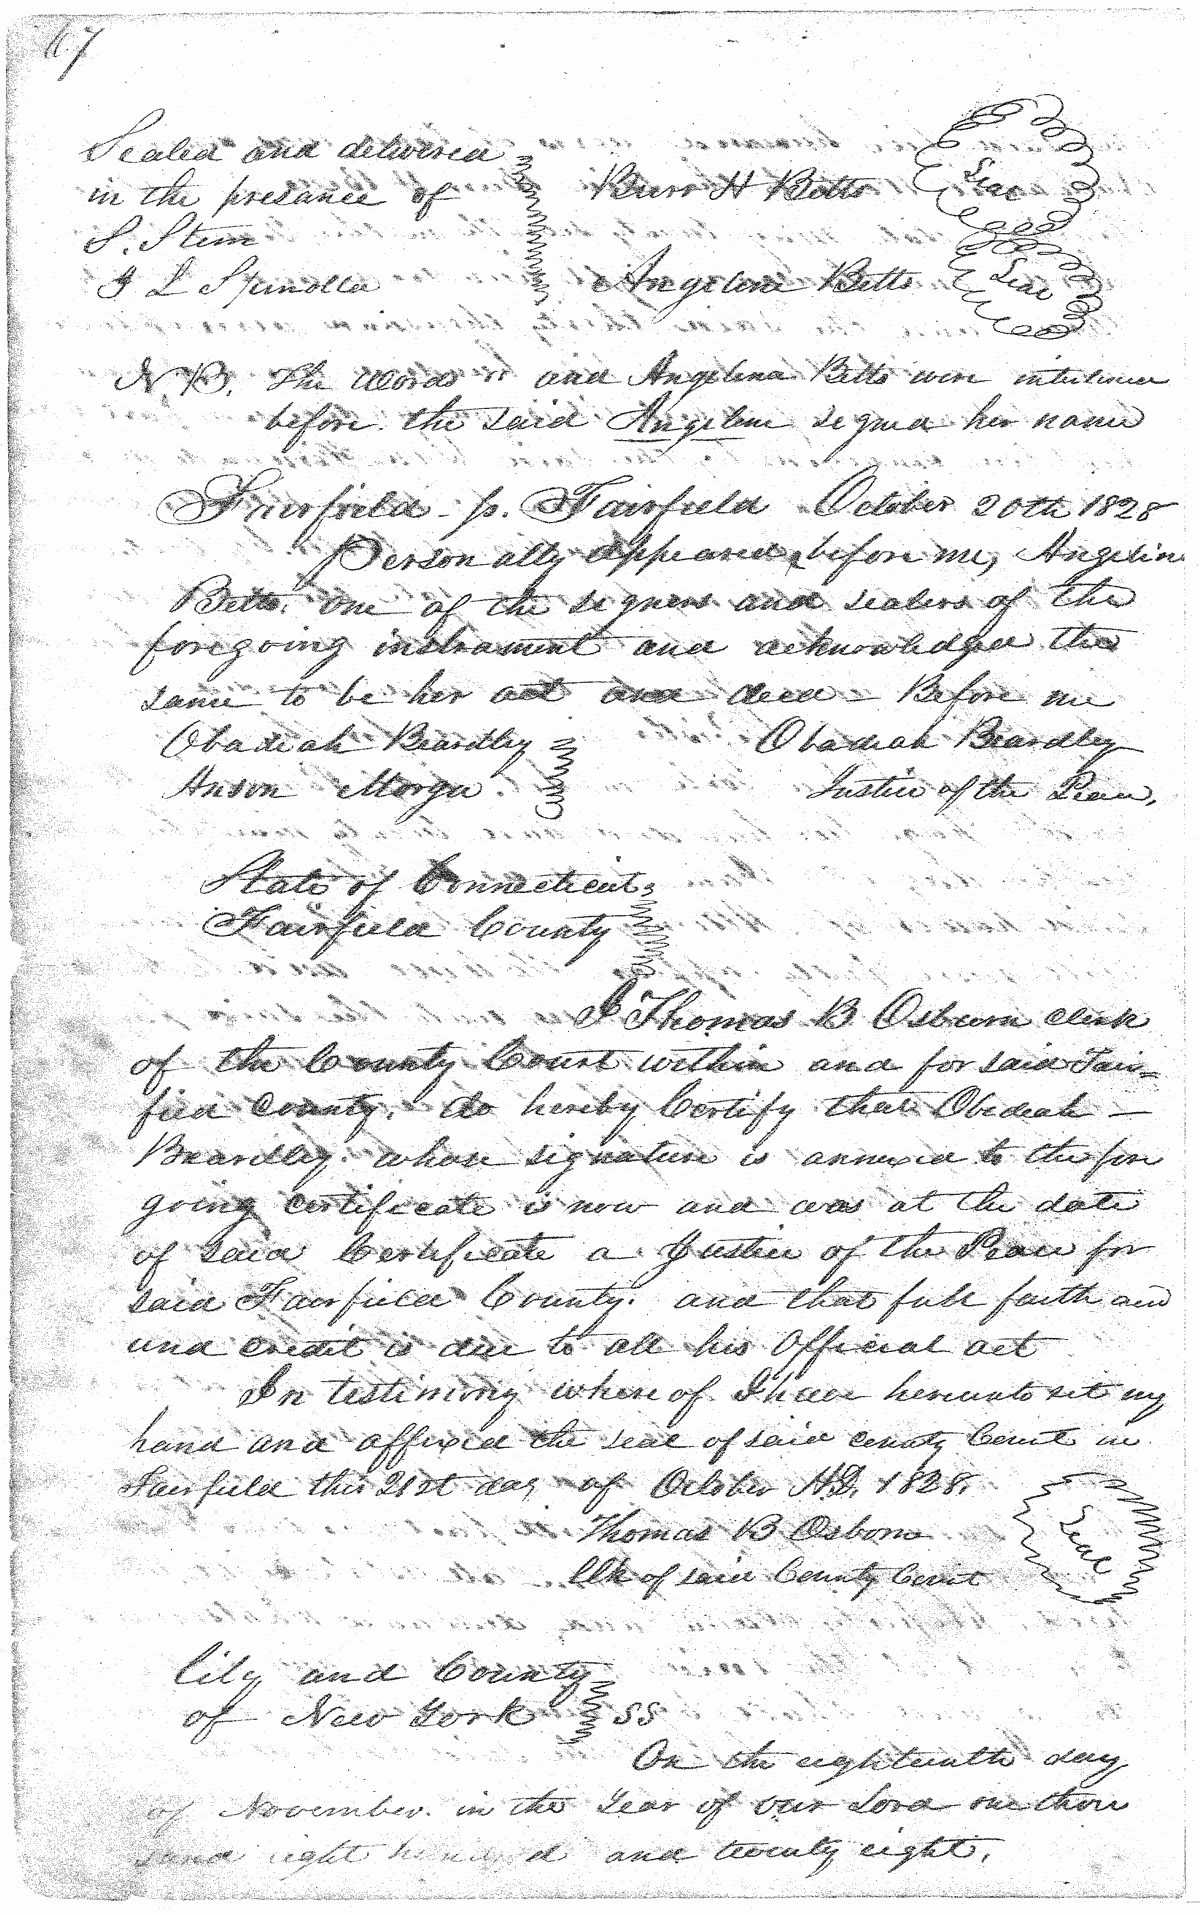 67
Sealed and delivered
in the presance of
Burr H Betts
Seal
S. Stein
L
Angeline Betts
Seal
N.B. The Words and Angelina Betts were interlined
before the said Angeline signed her name
Fairfield ss. Fairfield October 20th 1828
Personally appeared before me, Angeline
Betts, one of the signers and sealers of the
foregoing instrument and acknowledged the
same to be her act and deed - Before me
Obadiah Beardley
Obadiah Beardley
Anson Morgan
Justice of the Peace,
State of Connecticut
Fairfield County
I Thomas B Osburn Clerk
of the County Court within and for said Fair=
field County, do hereby Certify that Obediah —
Beardley whose signature is annexed to the fore
going certificate is now and was at the date
of said Certificate a Justice of the Peace for
said Fairfield County. and that full faith and
and credit is due to all his Official act
In testimony where of I have hereunto set my
hand and affixed the seal of said County Court in
Fairfield this 21st day of October A.D. 1828.
Thomas B Osborn
Clk of said County Court
Seal
City and County
of New York SS
On the eighteenth day
of November. in the Year of our Lord one thou
sand eight hundred and twenty eight.